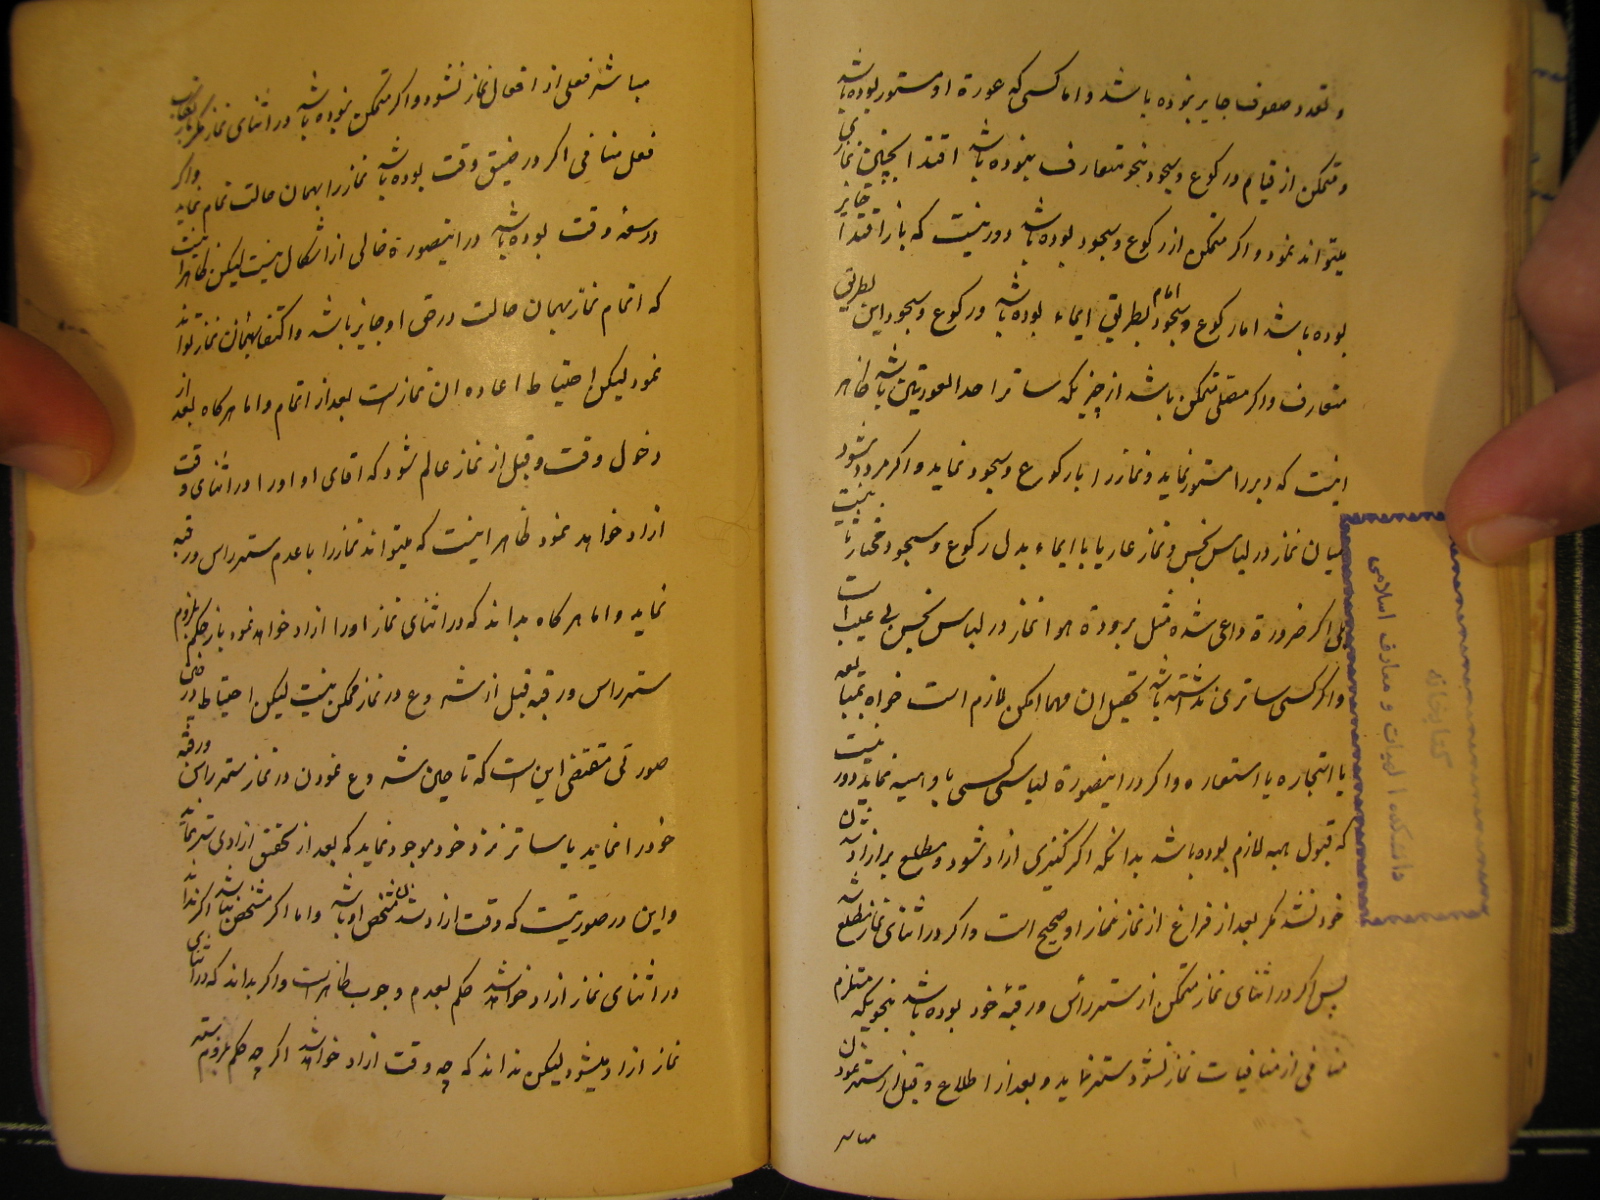 و تعدد صفوف جایز بوده باشد و اما کسی که عورة او مستور بوده باشد
و متمکن از قیام و رکوع و سجود بنحو متعارف نبوده باشد اقتدا بچنین نمازی
میتواند نمود و اگر متمکن از رکوع و سجود بوده باشد دور نیست که باز اقتدا جایز
بوده باشد اما رکوع و سجود امام بطریق ایماء بوده باشد و رکوع و سجود این بطریق
متعارف و اگر مصلی متمکن باشد از چیزیکه ساتر احد العورتین باشد ظاهر
اینست که دبر را مستور نماید و نماز را با رکوع و سجود نماید و اگر مردد شود
میان نماز در لباس نجس و نماز عاریا با ایماء بدل رکوع و سجود مختار نیست
بلی اگر ضرورة داعی شده مثل برودة هوا نماز در لباس نجس بی عیب است
و اگر کسی ساتری نداشته باشد تحصیل ان مهما امکن لازم است خواه بمبایعه
یا استجاره یا استعاره و اگر در اینصورة لباسی کسی باو هبه نماید دور نیست
که قبول هبه لازم بوده باشد بدانکه اگر کنیزی ازاد شود و مطلع بر ازاد شدن
خود نشد مگر بعد از فراغ از نماز نماز او صحیح است و اگر در اثنای نماز مطلع شد
پس اگر در اثنای نماز متمکن از ستر رأس و رقبهٔ خود بوده باشد بنحویکه مستلزم
منافی از منافیات نماز نشود ستر نماید و بعد از اطلاع و قبل از ستر نمودن
مباشر
دانشکده الهیات و معارف اسلامی
کتابخانه
مباشر فعلی از افعال نماز نشود و اگر متمکن نبوده باشد در اثنای نماز مگر بارتکاب
فعل منافی اگر در ضیق وقت بوده باشد نماز را بهمان حالت تمام نماید و اگر
در سعهٔ وقت بوده باشد در اینصورة خالی از اشکال نیست لیکن ظاهر اینست
که اتمام نماز بهمان حالت در حق او جایز باشد و اکتفا بهمان نماز تواند
نمود لیکن احتیاط اعاده ان نماز است بعد از اتمام و اما هر گاه بعد از
دخول وقت و قبل از نماز عالم شود که اقای او او را در اثنای وقت
ازاد خواهد نمود ظاهر اینست که میتواند نماز را با عدم ستر راس و رقبه
نماید و اما هر گاه بداند که در اثنای نماز او را ازاد خواهد نمود باز حکم بلزوم
ستر راس و رقبه قبل از شروع در نماز ممکن نیست لیکن احتیاط در چنین
صورتی مقتضی این است که تا حین شروع نمودن در نماز ستر راس و رقبه
خود را نماید یا ساتر نزد خود موجود نماید که بعد از تحقق ازادی ستر نماید
و این در صورتیست که وقت ازاد شدن مشخص او باشد و اما اگر مشخص نباشد اگر نداند
در اثنای نماز ازاد خواهد شد حکم بعدم وجوب ظاهر است و اگر بداند که در اثنای
نماز ازاد میشود لیکن نداند که چه وقت ازاد خواهد شد اگر چه حکم بلزوم ستر